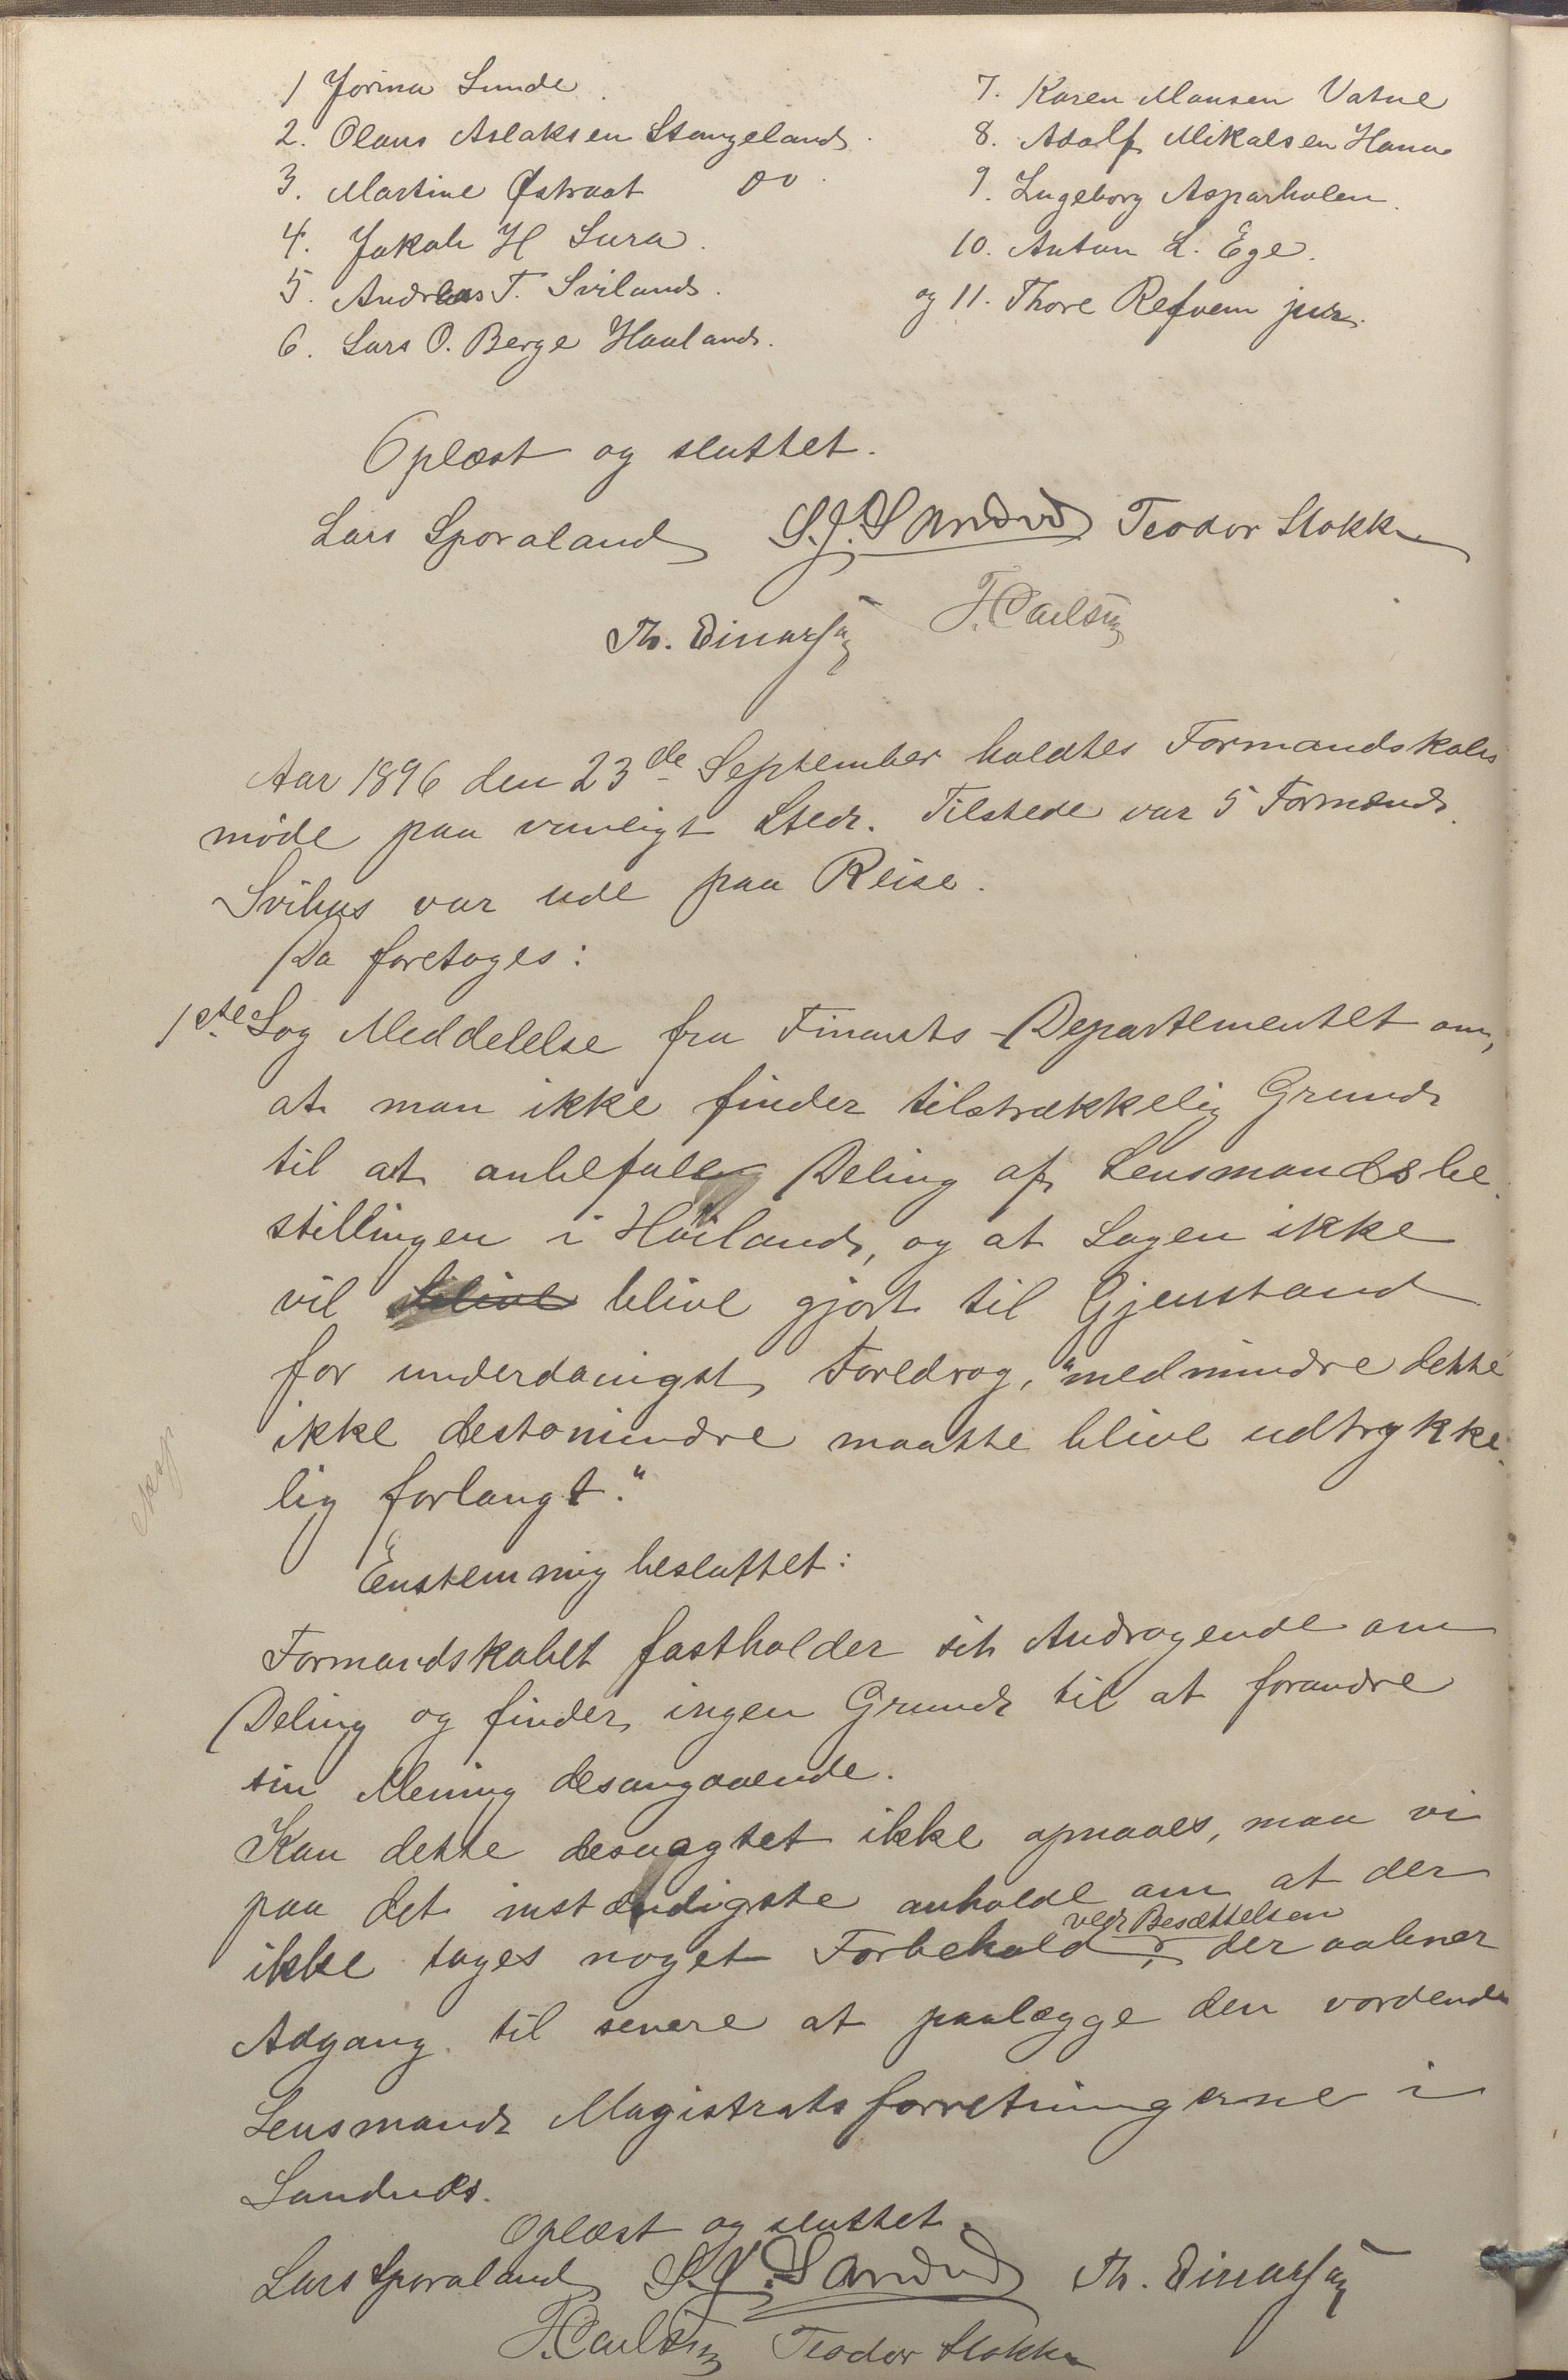 1 Jorina Lunde.
2. Olaus Aslaksen Stangeland.
3. Martine Østraat do.
4. Jakob H Lura.
5. Andreas T. Sviland.
6. Lars O. Berge Hauland.
7. Karen Mausen Vatne
8. Adolf Mikalsen Hana
9. Ingeborg Asparholen.
10. Anton L. Ege.
og 11. Thore Refvem jun.
Oplæst og sluttet.
Lars Sporaland S. J. Sandved Teodor Stokke
Th. Einarsen
Aar 1896 den 23de September holdtes Formandskabs
møde paa vanligt Sted. Tilstede var 5 Formænd.
Svihus var ude paa Reise.
Da foretoges:
1ste Sag Meddelelse fra Finants-Departementet om,
at man ikke finder tilstrækkelig Grund
til at anbefale Deling af Lensmandsbe-
stillingen i Høiland, og at Sagen ikke
vil blive gjort til Gjenstand
for underdanigst Foredrag, "medmindre dette
ikke destomindre maatte blive udtrykke-
lig forlangt."
Enstemmig besluttet:
Formandskabet fastholder sit Andragende om
Deling og finder ingen Grund til at forandre
sin Mening desangaaende.
Kan dette desuagtet ikke opnaaes, maa vi
paa det instændigste anholde om at der
ved Besættelsen
ikke tages noget Forbehold, der aabner
Adgang til senere at paalægge den vordende
Lensmand Magistratsforretningerne i
Sandnes.
Oplæst og sluttet.
Lars Sporaland S. J. Sandved Th. Einarsen
Teodor Stokke